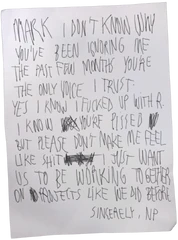 MARK I DON'T KNOW WHY
YOU'VE BEEN IGNORING ME
THE PAST FEW MONTHS YOU'RE
THE ONLY VOICE I TRUST
YES I KNOW I FUCKED UP WITH A
I KNOW YOU'RE PISSED
BUT PLEASE DON'T MAKE ME FEEL
LIKE SHIT I JUST WANT
US TO BE WORKING TOGETHER
ON PROJECTS LIKE WE DID BEFORE
SINCERELY, NP